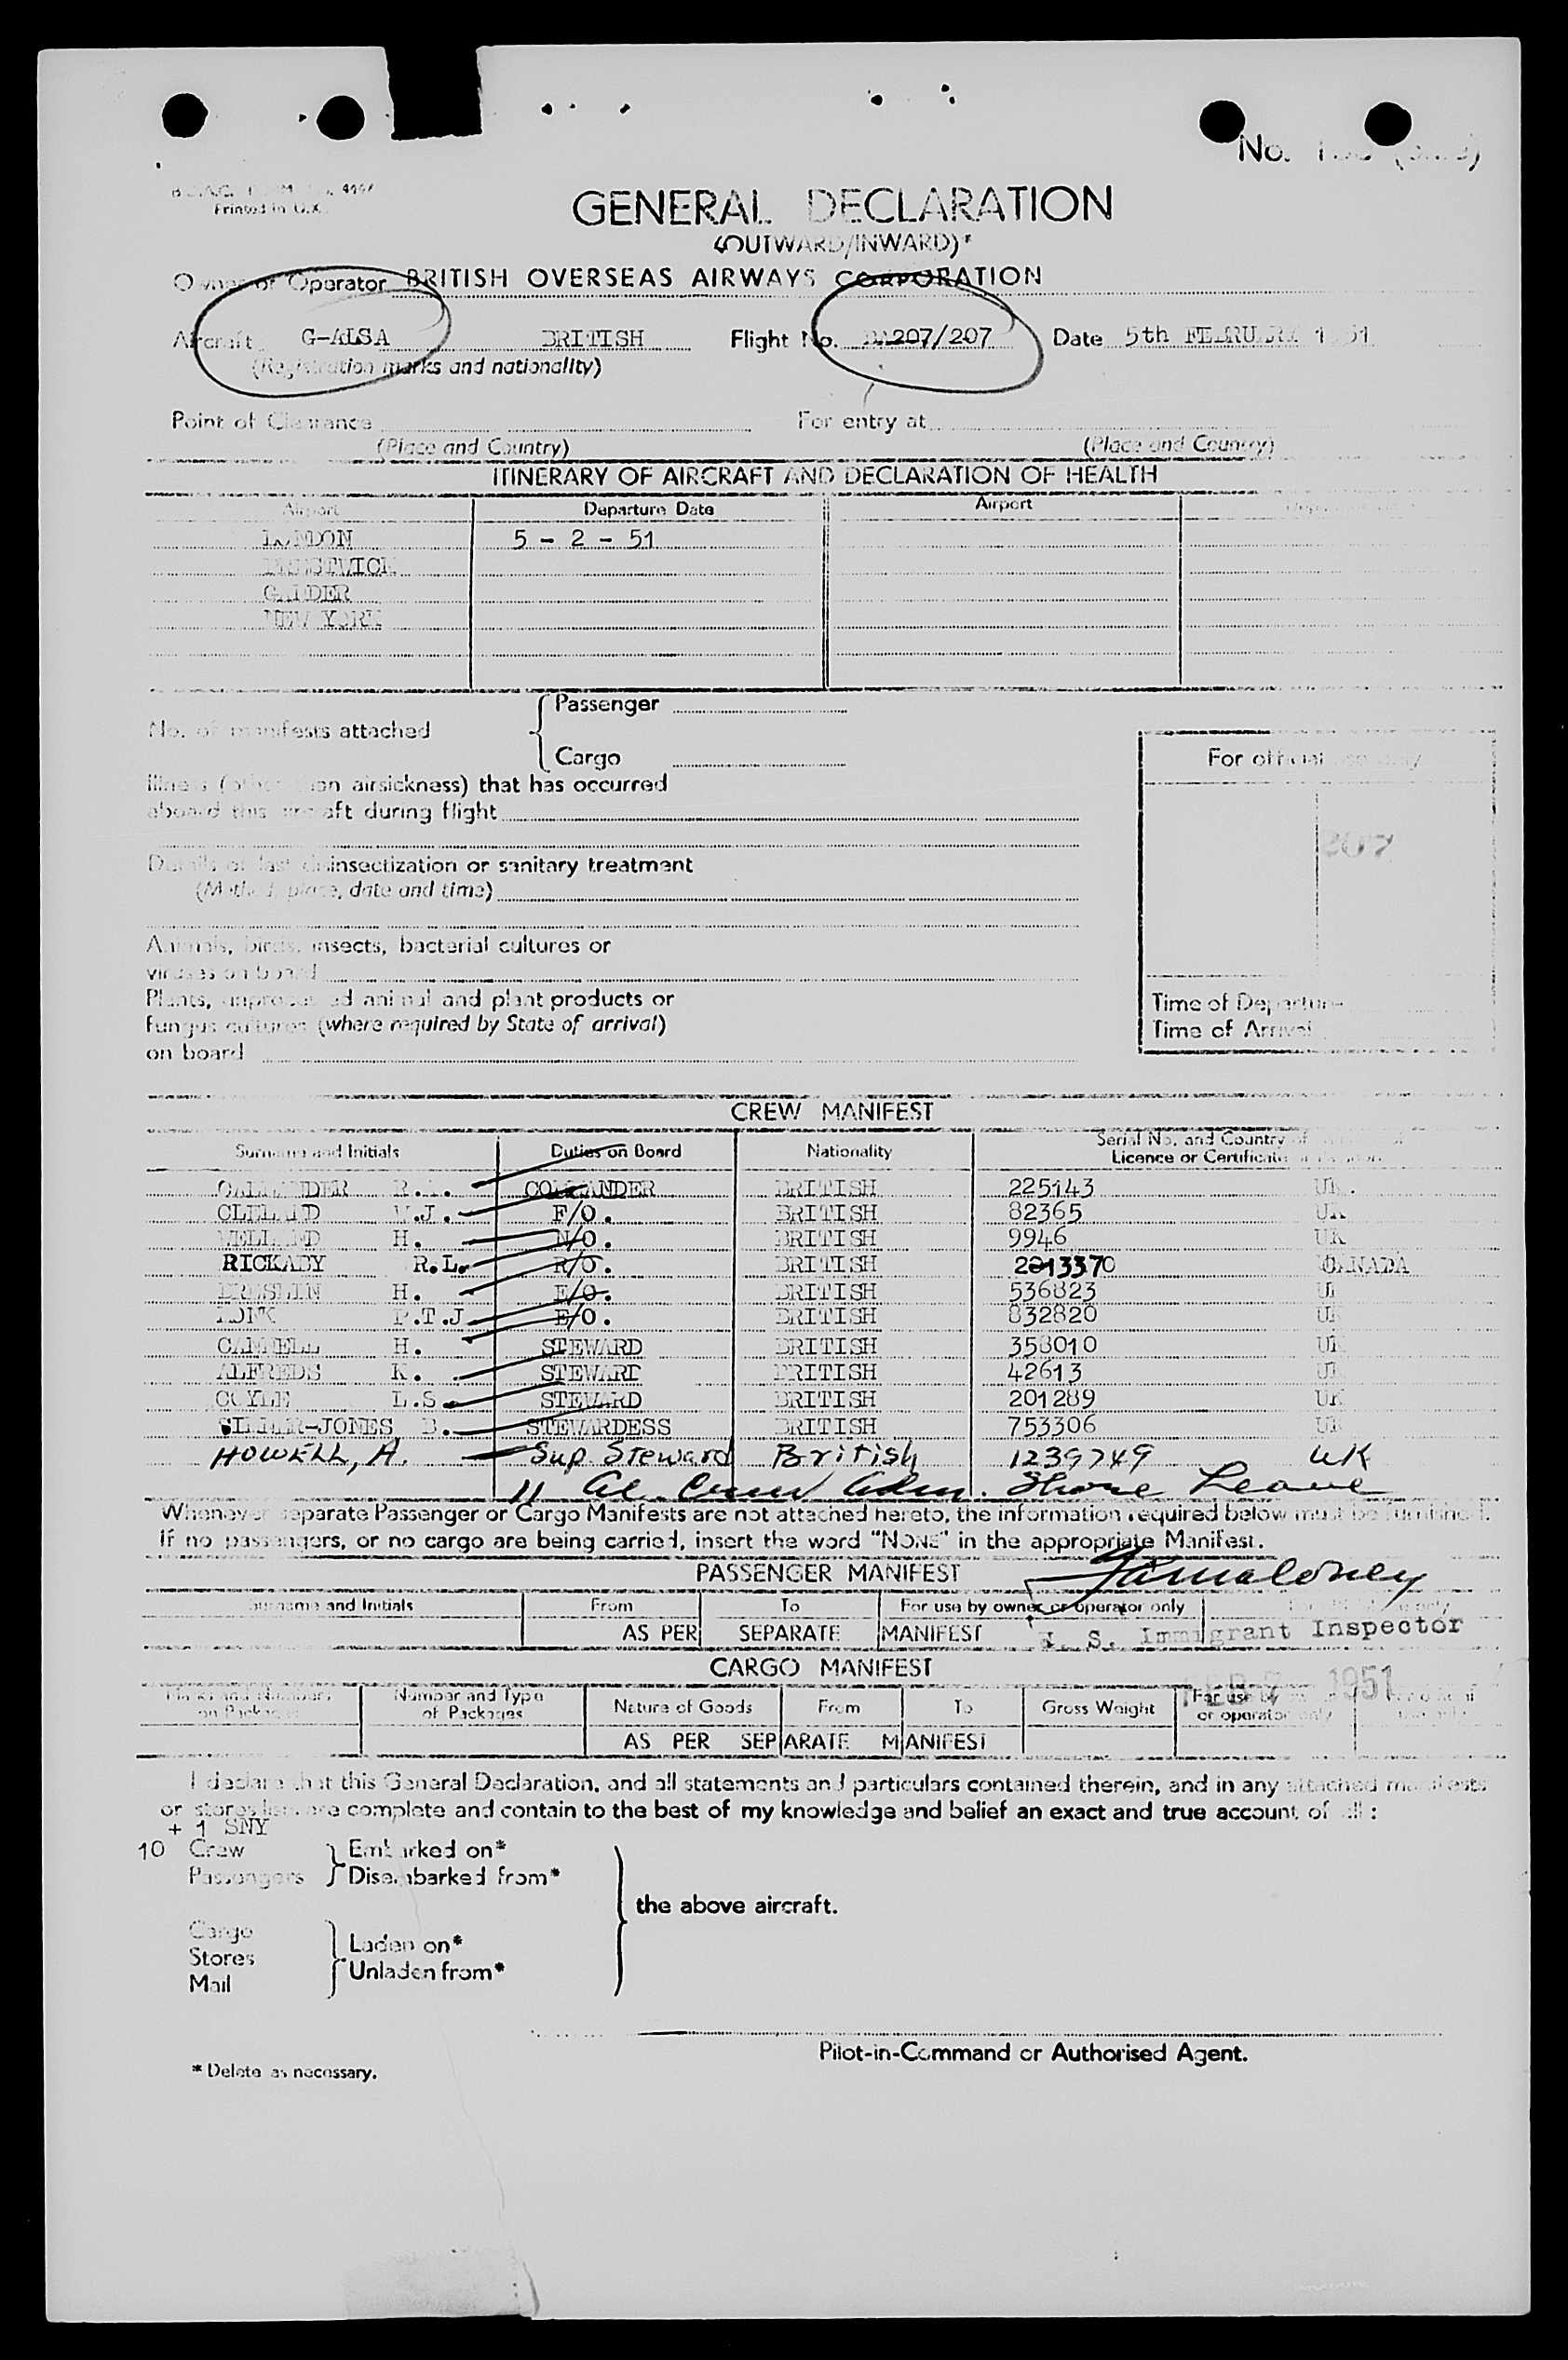 No.
Printed in U.K.
GENERAL DECLARATION
(OUTWARD/INWARD)*
Owner or Operator BRITISH OVERSEAS AIRWAYS CORPORATION
Aircraft G-ALSA BRITISH Flight No. BA207/207 Date 5th FEBRUARY 1951
(Registration marks and nationality)
Point of Clearance For entry at
(Place and Country) (Place and Country)
ITINERARY OF AIRCRAFT AND DECLARATION OF HEALTH
Airport Departure Date Airport
LONDON 5 - 2 - 51
PRESTWICK
GANDER
NEW YORK
Passenger
No. of manifests attached
Cargo
For official use only
Illness (other than airsickness) that has occurred
aboard this aircraft during flight
207
Details of last disinsectization or sanitary treatment
(Method, place, date and time)
Animals, birds, insects, bacterial cultures or
viruses on board
Plants, unprocessed animal and plant products or
fungus cultures (where required by State of arrival)
on board
Time of Departure
Time of Arrival
CREW MANIFEST
Surname and Initials Duties on Board Nationality Serial No. and Country of
Licence or Certificate
R. COMMANDER BRITISH 225143 UK.
CLELAND J. F/O. BRITISH 82365 UK
H. N/O. BRITISH 9946 UK
RICKABY R.L. R/O. BRITISH 2213370 CANADA
H. E/O. BRITISH 536823 UK
P.T.J E/O. BRITISH 832820 UK
H. STEWARD BRITISH 358010 UK
ALFREDS K. STEWARD BRITISH 42613 UK
COYLE L.S. STEWARD BRITISH 201289 UK
-JONES B. STEWARDESS BRITISH 753306 UK
HOWELL, A. Sup. Steward British 1239749 UK
11 al. Crew adm. Shore Leave
Whenever separate Passenger or Cargo Manifests are not attached hereto, the information required below must be furnished.
If no passengers, or no cargo are being carried, insert the word "NONE" in the appropriate Manifest.
PASSENGER MANIFEST
Surname and Initials From To For use by owner or operator only
AS PER SEPARATE MANIFEST
U. S. Immigrant Inspector
CARGO MANIFEST
FEB 1951
Marks and Numbers on Packages Number and Type of Packages Nature of Goods From To Gross Weight For use by or operator only
AS PER SEPARATE MANIFEST
I declare that this General Declaration, and all statements and particulars contained therein, and in any attached manifests
or stores lists are complete and contain to the best of my knowledge and belief an exact and true account of all :
+ 1 SNY
10 Crew Embarked on*
Passengers Disembarked from*
the above aircraft.
Cargo
Laden on*
Stores
Unladen from*
Mail
Pilot-in-Command or Authorised Agent.
* Delete as necessary.